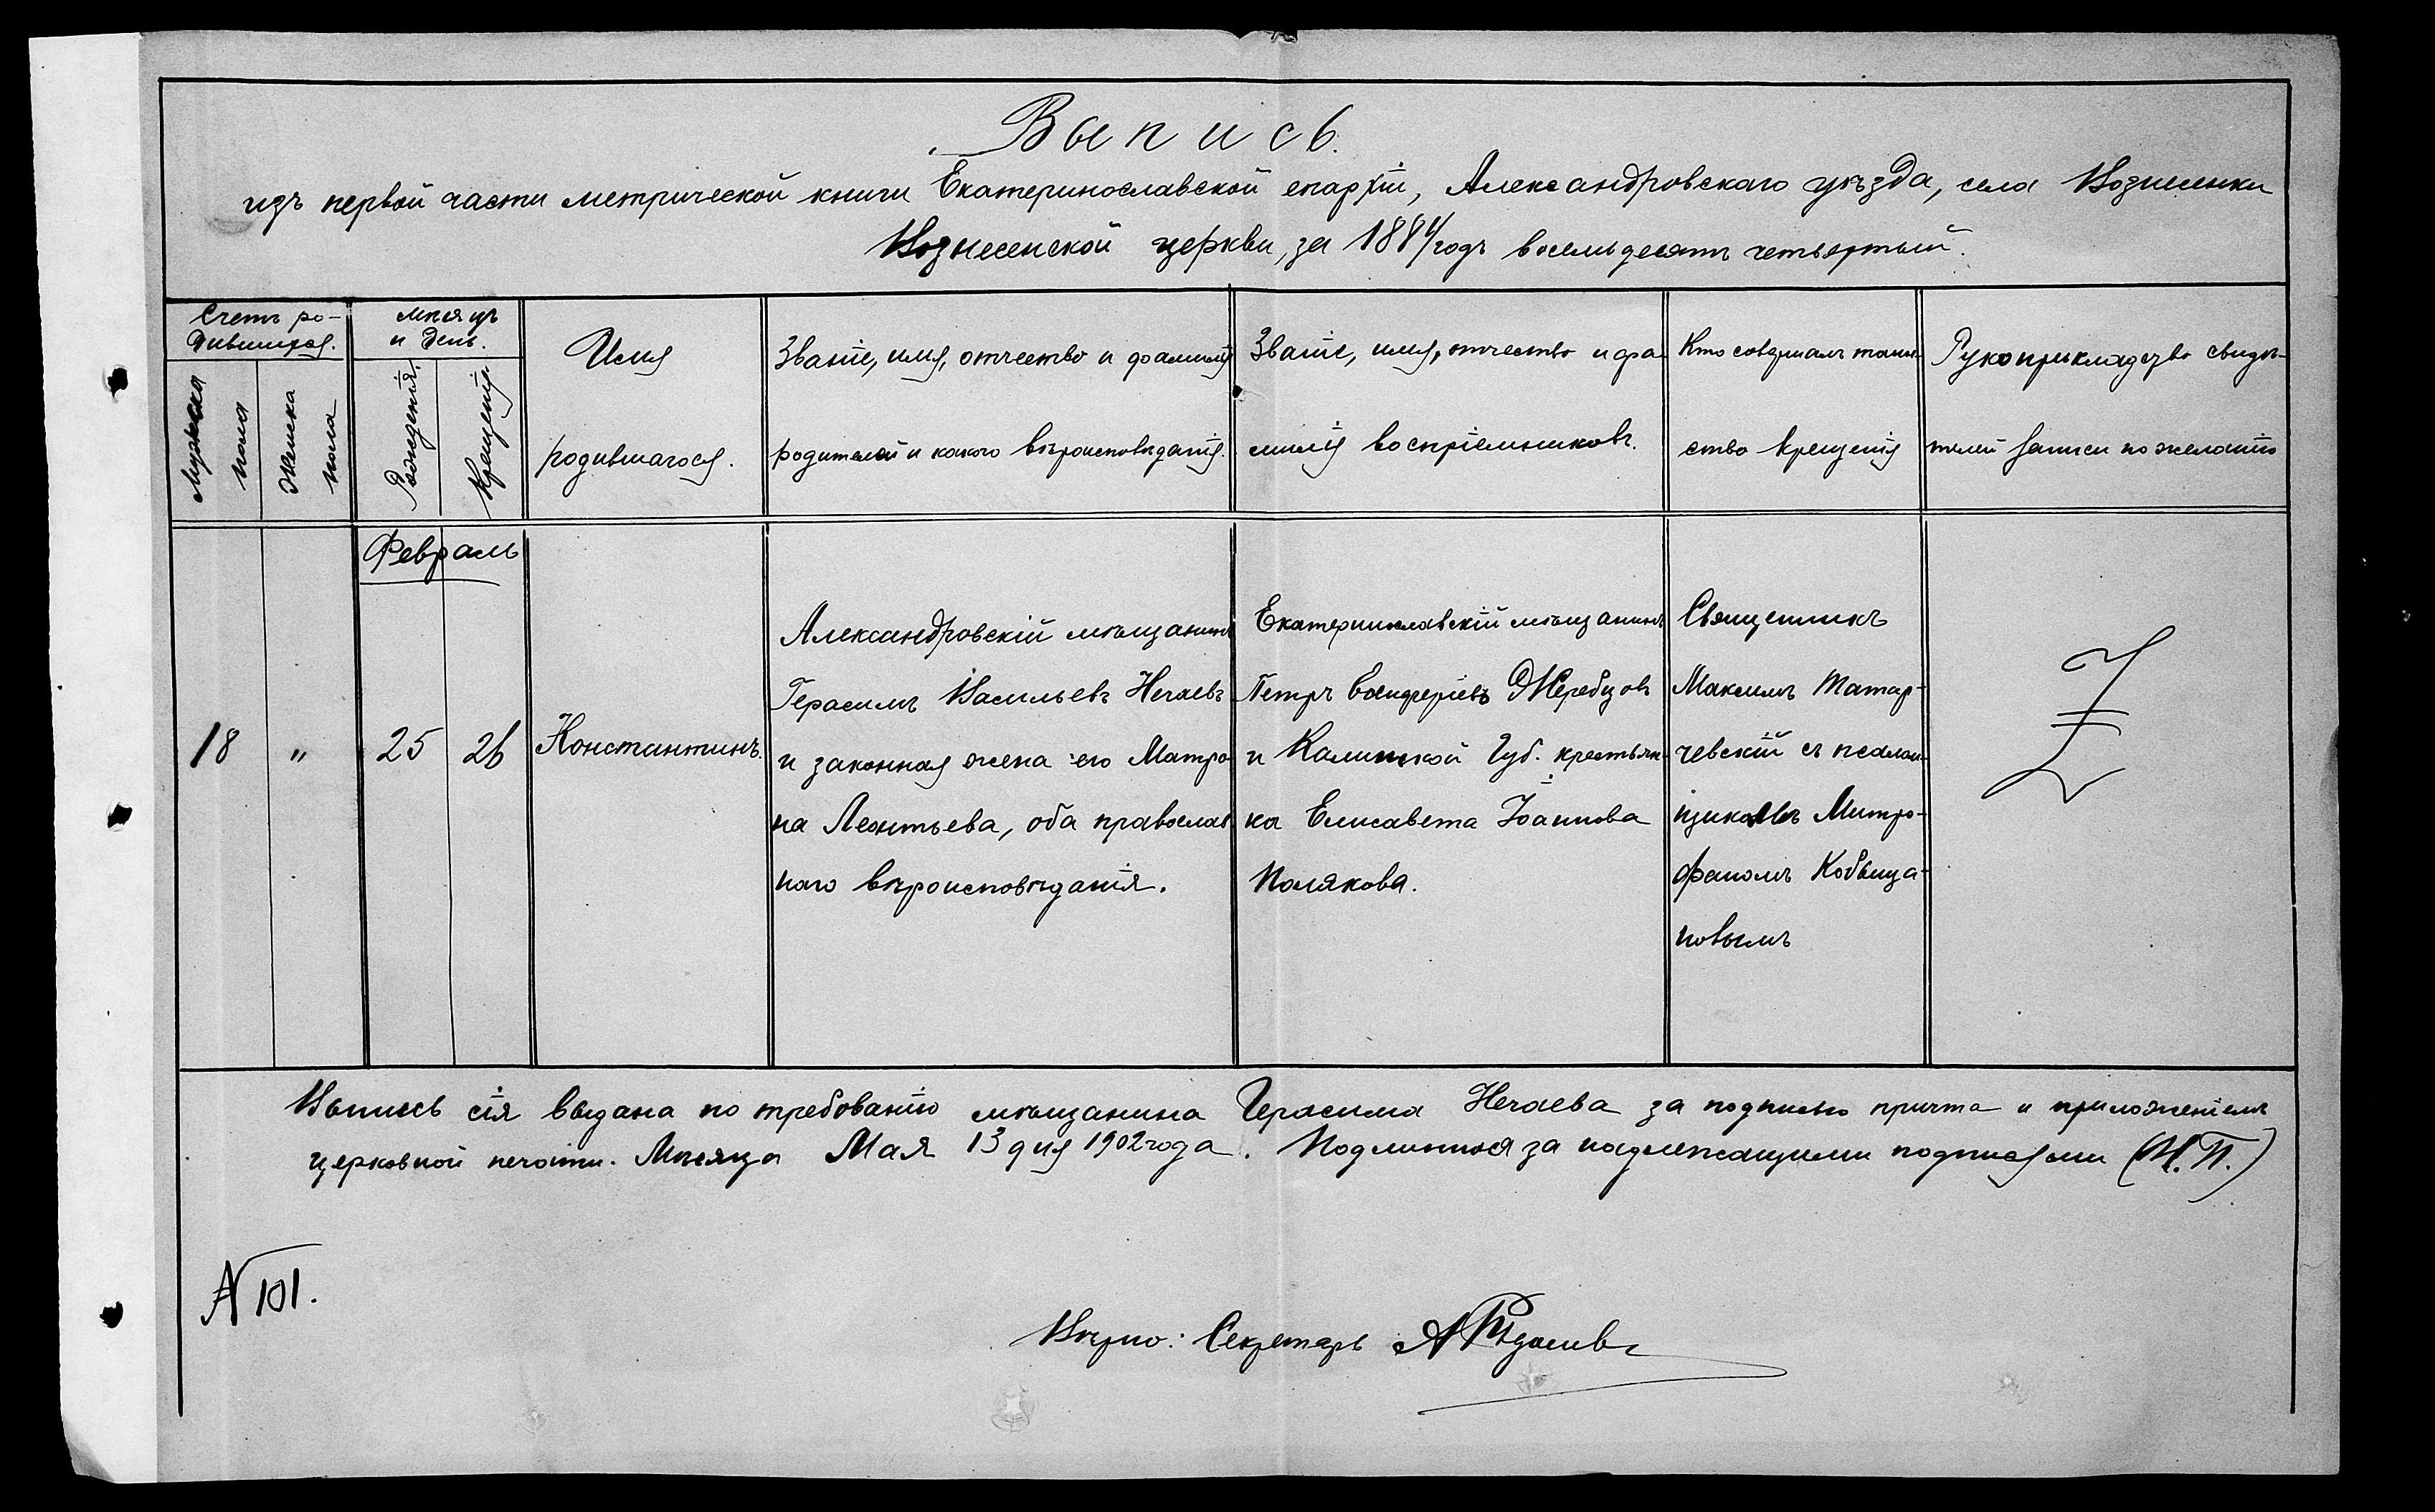 Выпись.
изъ первой части метрической книги Екатеринославской епархіи, Александровскаго уѣзда, села Вознесенки
Вознесенской церкви, за 1884/годъ восемьдесятъ четвертый.
Счетъ ро-
дившихся.
Мужска
пола
Женска
пола
мѣсяцъ
и день.
Рожденія.
Крещенія
Имя
родившагося.
Званіе, имя, отчество и фамилія
родителей и какого вѣроисповѣданія.
Званіе, имя, отчество и фа-
милія воспріемниковъ.
Кто совершалъ таин-
ство крещенія
Рукоприкладство свидѣ-
телей записи по желанію
Февраль
18
"
25
26
Константинъ.
Александровскій мѣщанинъ
Герасимъ Васильевъ Нечаевъ
и законная жена его Матро-
на Леонтьева, оба православ-
наго вѣроисповѣданія.
Екатеринославскій мѣщанинъ
Петръ Жеребцовъ
и Губ. крестьян-
ка Елисавета Іоаннова
Полякова.
Священникъ
Максимъ Татар-
чевскій съ псалом-
щикомъ Митро-
фаномъ Кобыща-
новымъ
Выпись сія выдана по требованію мѣщанина Герасима Нечаева за подписью причта и приложеніемъ
церковной печати. Мѣсяца Мая 13 дня 1902 года. Подлинная за надлежащими подписями (М.П.)
№ 101.
Вѣрно: Секретарь